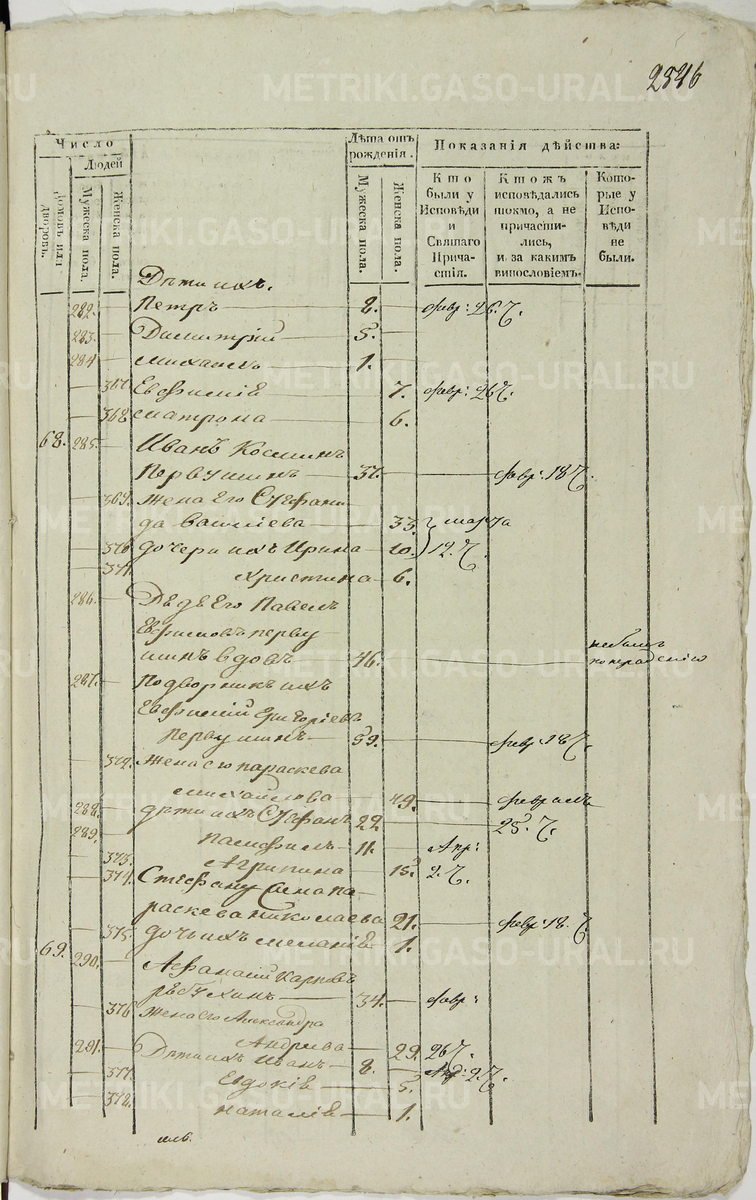 2546
Число
Людей
Домовъ или дворовъ.
Мужеска пола.
Женска пола.
Лѣта отъ рожденія.
Мужеска пола.
Женска пола.
Показанія дѣйства:
Кто были у Исповѣди и Святаго Причастія.
Ктожъ исповѣдались токмо, а не причастились, и за какимъ винословіемъ.
Которые у Исповѣди не были.
Дѣти ихъ.
282. Петръ 8. февр: 26. ч.
283. Димитрій 5.
284 Михаилъ 1.
367. Евфимія 7. февр: 26 ч.
368 Матрона 6.
68. 285. Иванъ Косминъ
Первушинъ 37. февр: 18 ч.
369. Жена его Стефани
да Васильева 33. марта
370 дочери ихъ Ирина 10. 12. ч.
371. Христина 6.
286. Дѣдъ его Павелъ
Евфимовъ перву
шинъ вдовъ 46. небылъ
по нерадѣнію
287. Подворникъ ихъ
Евфимій Григоріевъ
Первушинъ 59. февр: 18 ч.
372. Жена его Параскева
Михайлова 49. февраля
288. дѣти ихъ Стефанъ 22. 25. ч.
289. Памфилъ 11. Апр:
373. Агрипина 15. 2. ч.
374. Стефану жена па-
раскева николаева 21. февр: 18. ч.
375. дочь ихъ Меланія 1.
69. 290. Афанасій Карповъ
34. февр:
376 Жена его Александра
Андреева 29. 26 ч.
291. Дѣти ихъ Иванъ 8. Апр: 2. ч.
377. Евдокія 5.
378. Наталія 1.
METRIKI.GASO-URAL.RU